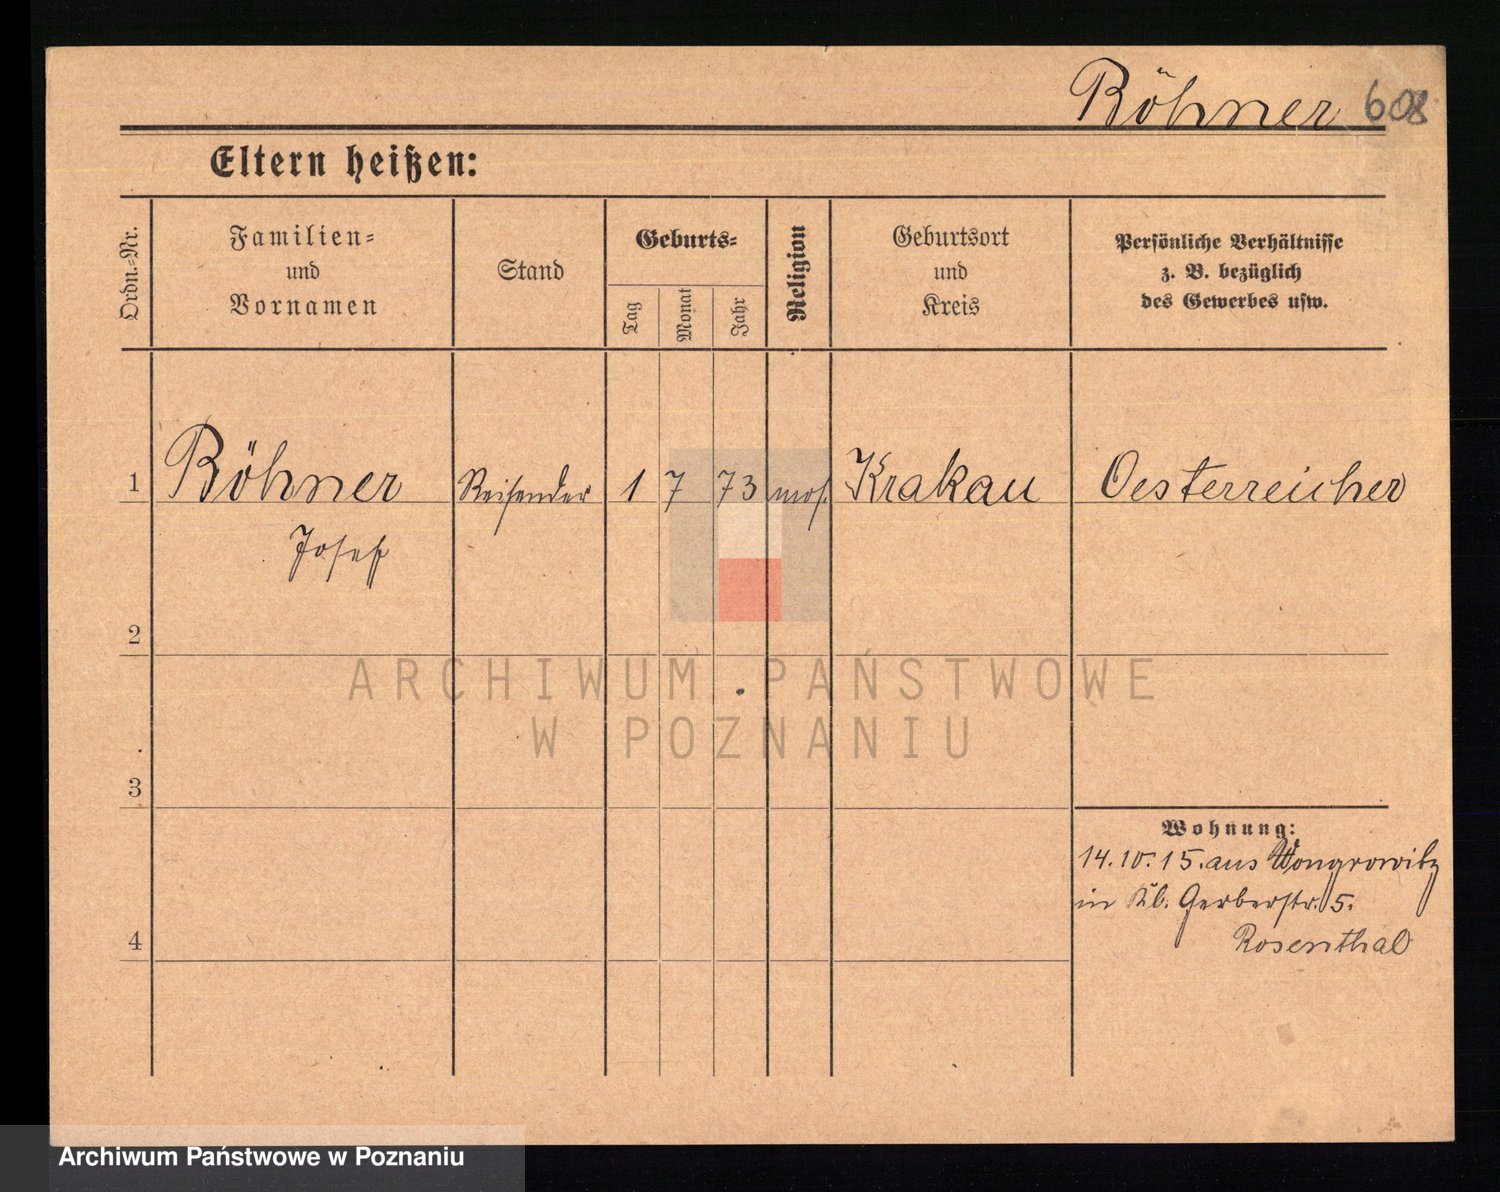 Böhner 608
Eltern heißen:
Ordn.-Nr.
Familien-
und
Vornamen
Stand
Geburts-
Tag
Monat
Jahr
Religion
Geburtsort
und
Kreis
Persönliche Verhältnisse
z. B. bezüglich
des Gewerbes usw.
1 Böhner Reisender 1 7 73 mos. Krakau Oesterreicher
Josef
2
ARCHIWUM PAŃSTWOWE
W POZNANIU
3
Wohnung:
14.10.15. aus Wongrowitz
in Kl. Gerberstr. 5.
4
Rosenthal
Archiwum Państwowe w Poznaniu